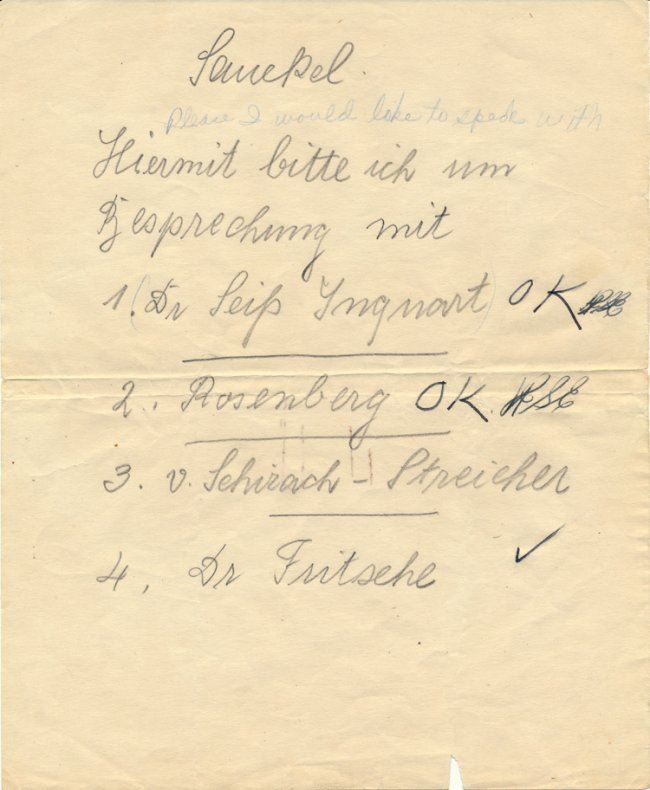 Sauckel.
Please I would like to speak with
Hiermit bitte ich um
Besprechung mit
1. (Dr Seiß Inquart) OK HSE
2. Rosenberg OK. HSE
3. v. Schirach – Streicher
4, Dr Fritsche ✓